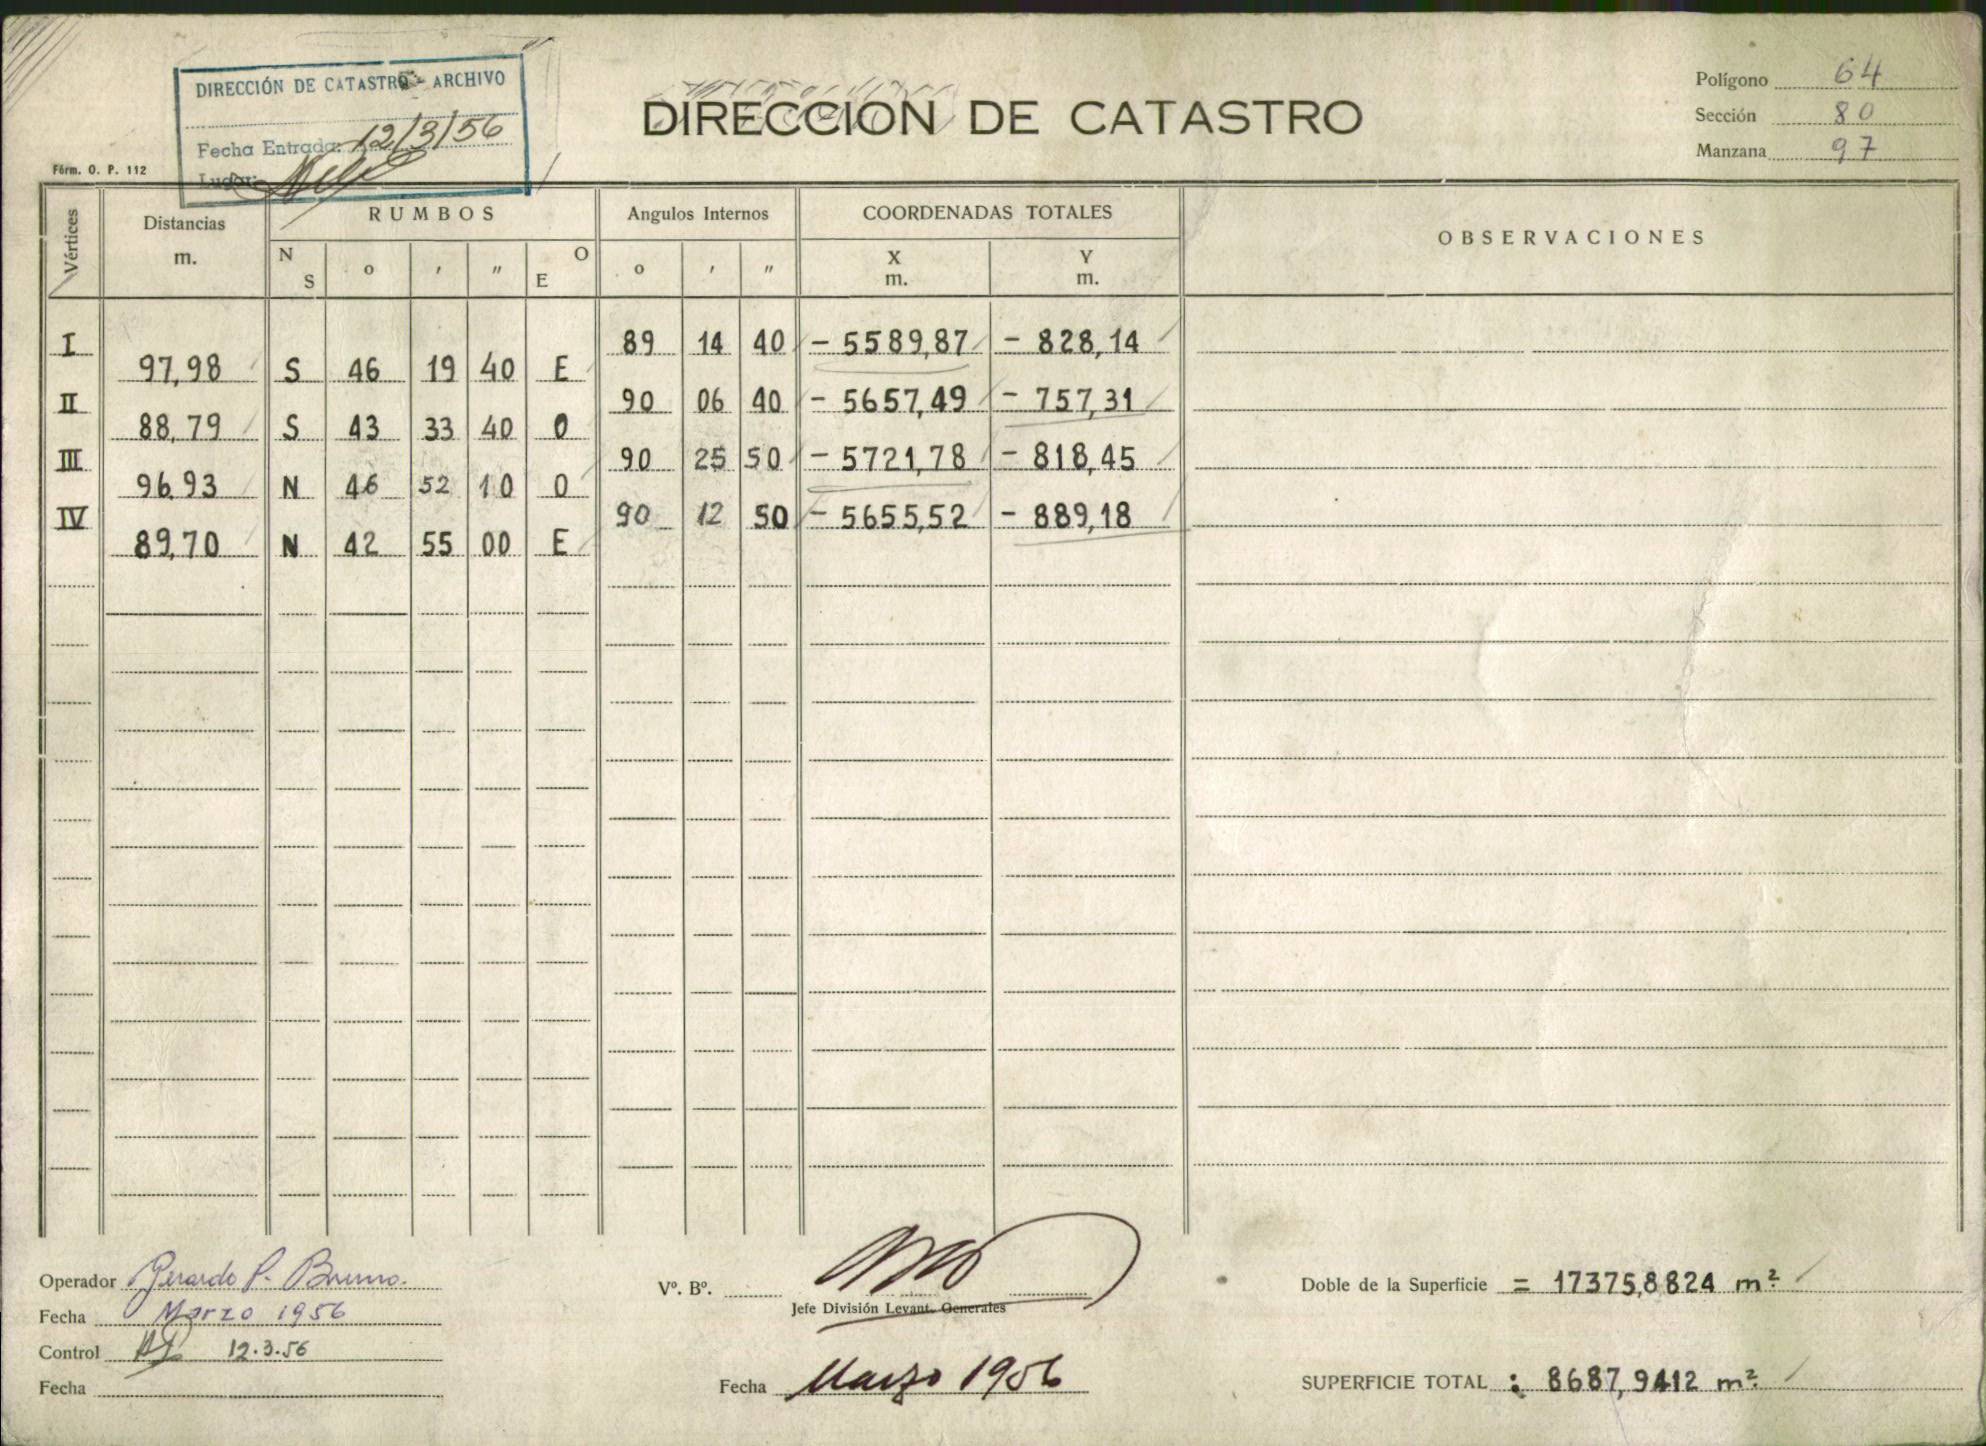 DIRECCIÓN DE CATASTRO - ARCHIVO
Fecha Entrada: 12/3/56
Lugar:
Fórm. O. P. 112
DIRECCION DE CATASTRO
Polígono 64
Sección 80
Manzana 97
Vértices
Distancias m.
RUMBOS
N S o ' " E O
Angulos Internos
o ' "
COORDENADAS TOTALES
X m.
Y m.
OBSERVACIONES
I 89 14 40 - 5589,87 - 828,14
97,98 S 46 19 40 E
II 90 06 40 - 5657,49 - 757,31
88,79 S 43 33 40 O
III 90 25 50 - 5721,78 - 818,45
96,93 N 46 52 10 O
IV 90 12 50 - 5655,52 - 889,18
89,70 N 42 55 00 E
Operador Gerardo P. Bruno.
Fecha Marzo 1956
Control 12.3.56
Fecha
Vº. Bº.
Jefe División Levant. Generales
Fecha Marzo 1956
Doble de la Superficie = 17375,8824 m².
SUPERFICIE TOTAL : 8687,9412 m².